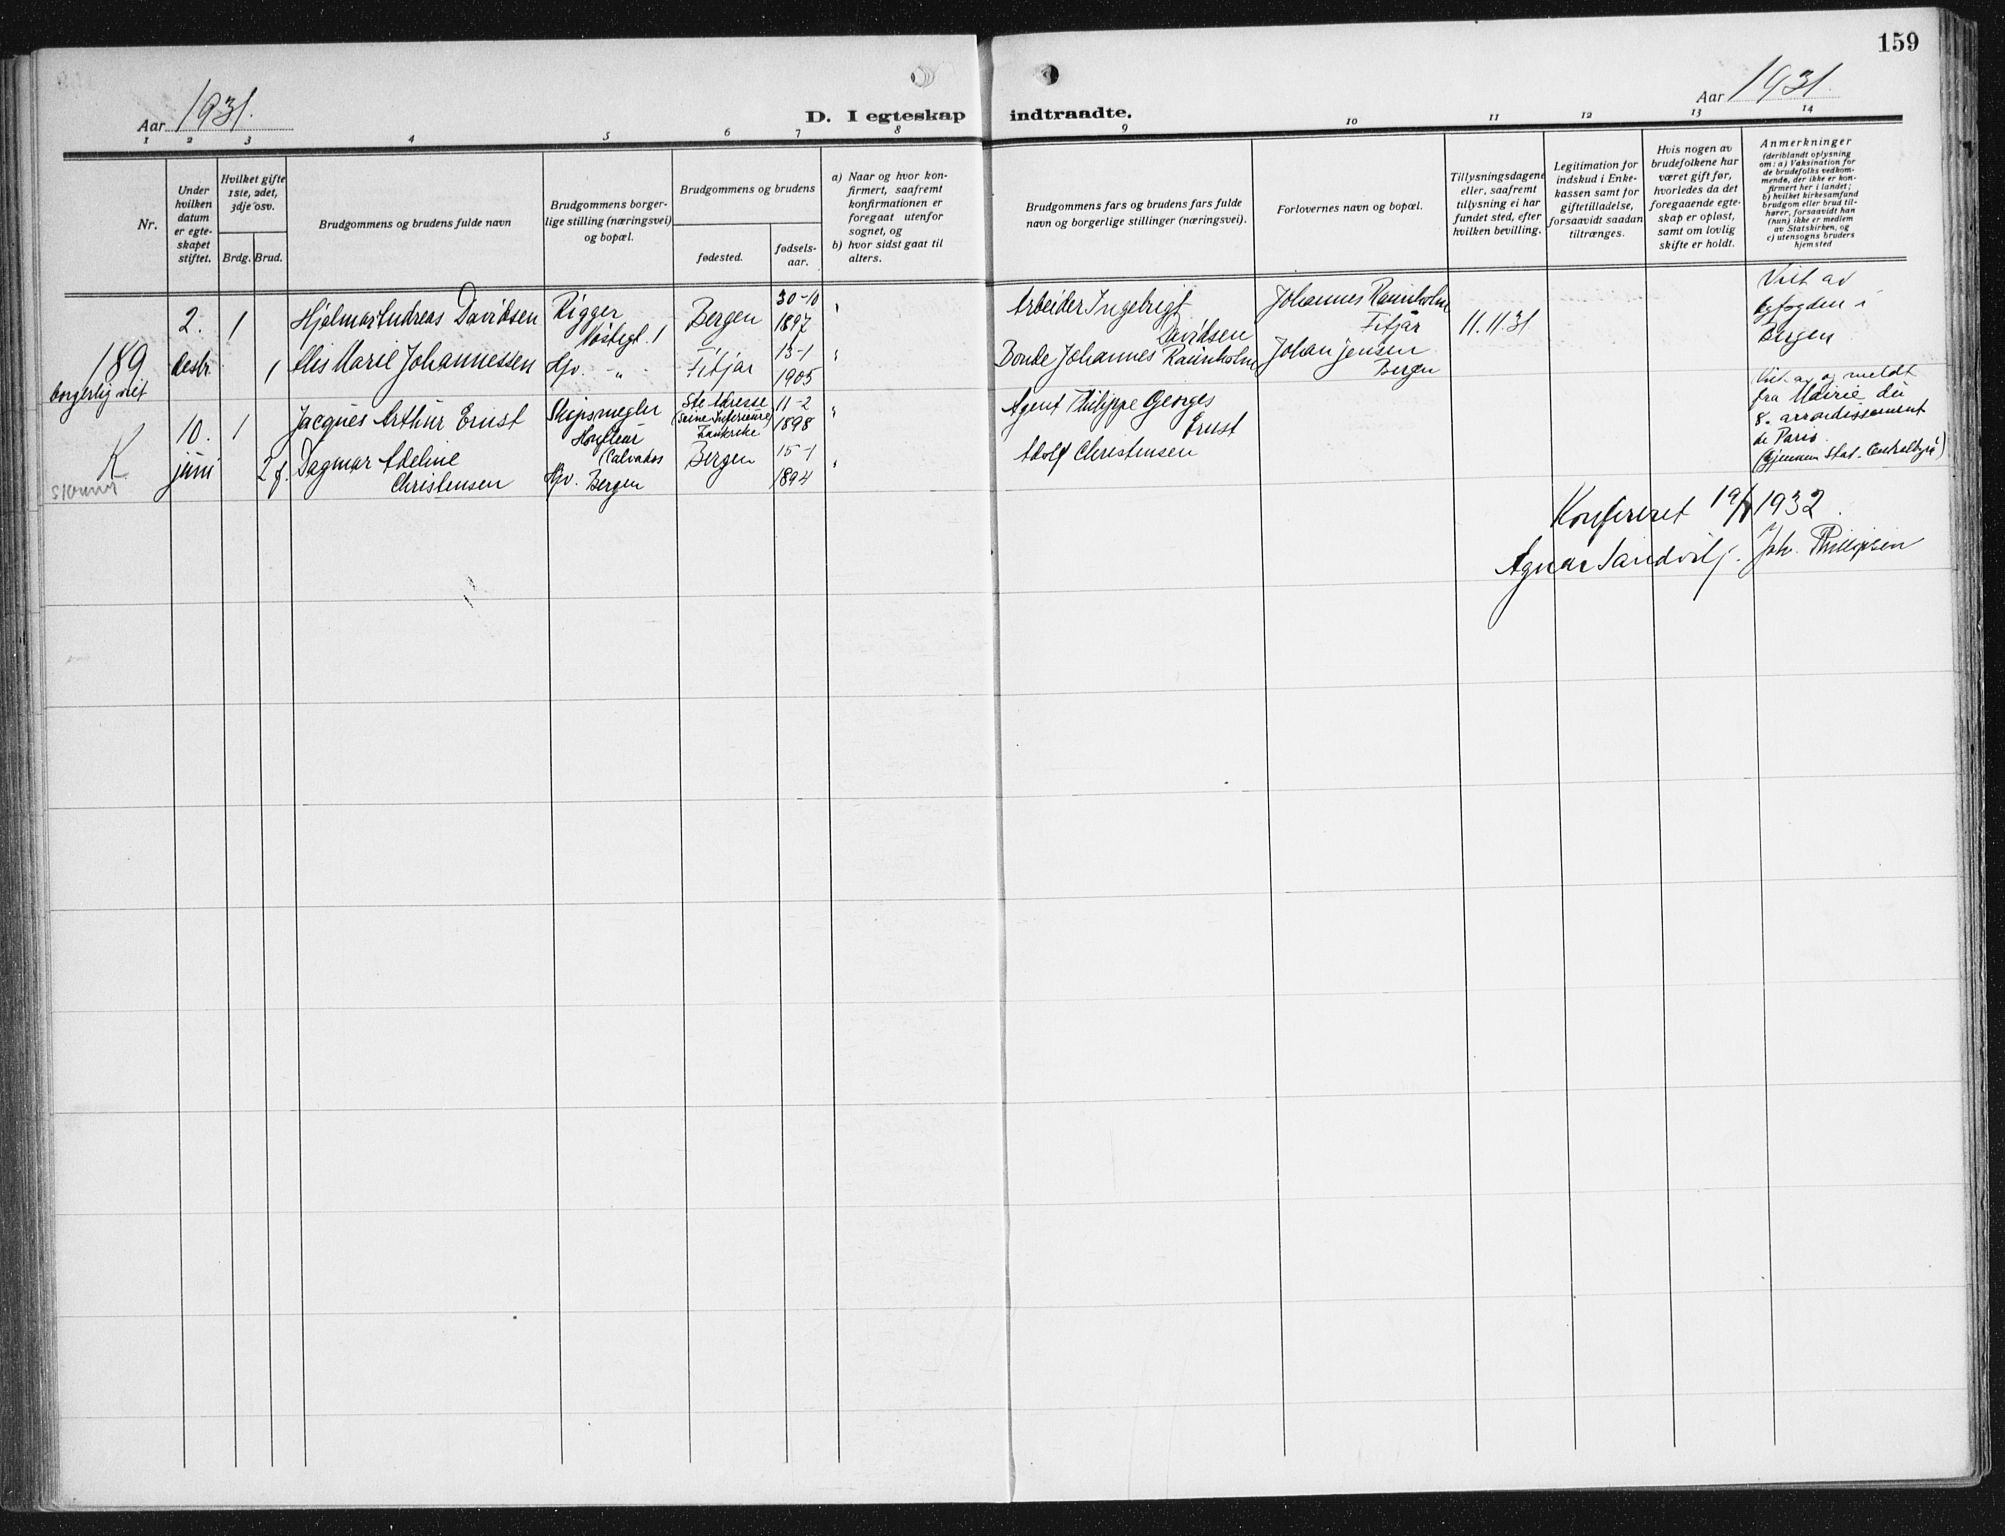 159
Aar 1931.
D. I egteskap indtraadte.
Aar 1931.
1 2 3 4 5 6 7 8 9 10 11 12 13 14
Nr.
Under
hvilken
datum
er egte-
skapet
stiftet.
Hvilket gifte
1ste, 2det,
3dje osv.
Brdg. Brud.
Brudgommens og brudens fulde navn
Brudgommens borger-
lige stilling (næringsvei)
og bopæl.
Brudgommens og brudens
fødested.
fødsels-
aar.
a) Naar og hvor kon-
firmert, saafremt
konfirmationen er
foregaat utenfor
sognet, og
b) hvor sidst gaat til
alters.
Brudgommens fars og brudens fars fulde
navn og borgerlige stillinger (næringsvei).
Forlovernes navn og bopæl.
Tillysningsdagene
eller, saafremt
tillysning ei har
fundet sted, efter
hvilken bevilling.
Legitimation for
indskud i Enke-
kassen samt for
giftetilladelse,
forsaavidt saadan
tiltrænges.
Hvis nogen av
brudefolkene har
været gift før,
hvorledes da det
foregaaende egte-
skap er opløst,
samt om lovlig
skifte er holdt.
Anmerkninger
(deriblandt oplysning
om: a) Vaksination for
de brudefolks vedkom-
mende, der ikke er kon-
firmert her i landet;
b) hvilket kirkesamfund
brudgom eller brud til-
hører, forsaavidt han
(hun) ikke er medlem
av Statskirken, og
c) utensogns bruders
hjemsted
189
borgerlig viet
2.
desbr.
1
Hjalmar Andreas Davidsen
Rigger
Nøstegt. 1
Bergen
30-10
1897
"
Arbeider Ingebrigt
Davidsen
Johannes Raunholm
Fitjar
11.11.31
Viet av
byfogden i
Bergen
1
Marie Johannessen
Hjv. - " -
Fitjar
13-1
1905
"
Bonde Johannes Raunholm
Johan Jensen
Bergen
K
10.
juni
1
Jacques Arthur Ernst
Skipsmegler
Honfleur
(Calvados
Ste Adresse
(Seine Inferieure)
Frankrike
11-2
1898
"
Agent Philippe Georges
Ernst
Viet av og meldt
fra Mairie du
8. arrondissement
de Paris.
(Gjennem Stat. Centralbyrå)
2 f.
Dagmar Adeline
Christensen
Hjv. Bergen
Bergen
15-1
1894
"
Adolf Christensen
Konfereret 19/1 1932.
Agnar Sandvik j. Joh. Phillipsen